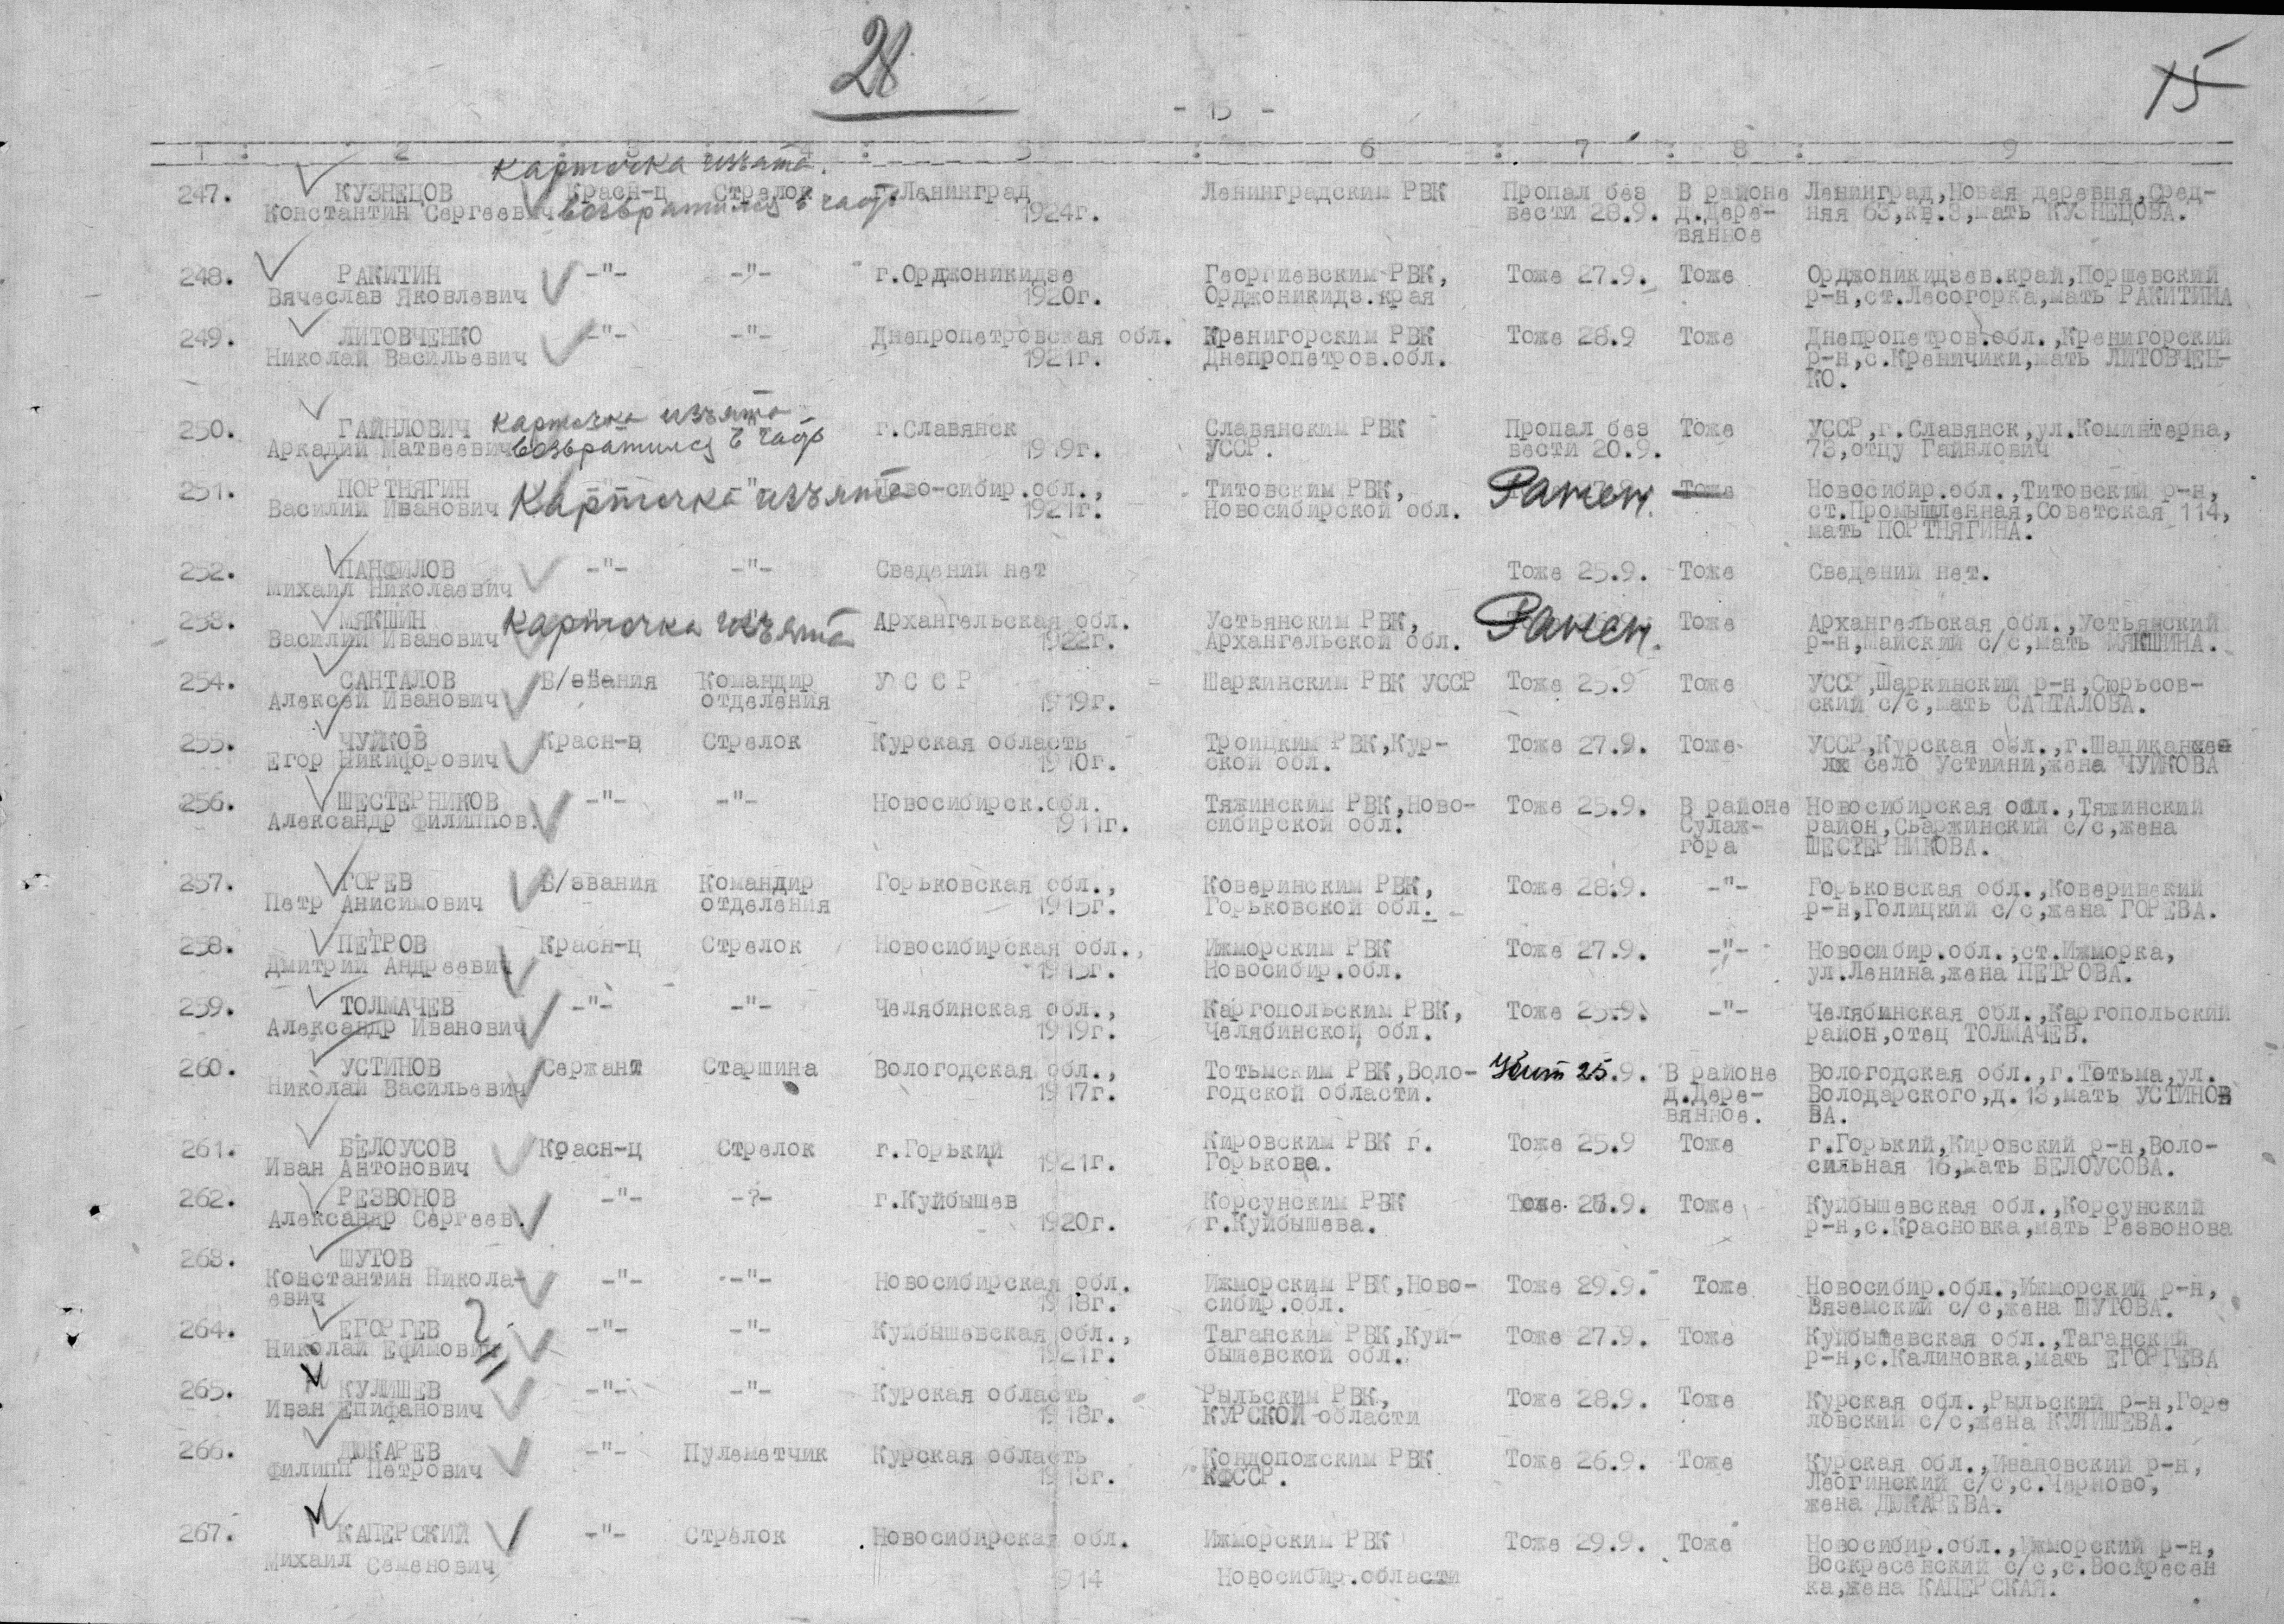 28
15
- 15 -
1 : 2 : 3 : 4 : 5 : 6 : 7 : 8 : 9
Карточка изъята.
247. КУЗНЕЦОВ Красн-ц Стрелок г.Ленинград Ленинградским РВК Пропал без В районе Ленинград,Новая деревня,Сред-
Константин Сергеевич возвратился в часть 1924г. вести 28.9. д.Дере- няя 63,кв.3,мать КУЗНЕЦОВА.
вянное
248. РАКИТИН -"- -"- г.Орджоникидзе Георгиевским РВК, Тоже 27.9. Тоже Орджоникидзев.край,Поршевский
Вячеслав Яковлевич 1920г. Орджоникидз.края р-н,ст.Лесогорка,мать РАКИТИНА
249. ЛИТОВЧЕНКО -"- -"- Днепропетровская обл. Кренигорским РВК Тоже 28.9 Тоже Днепропетров.обл.,Кренигорский
Николай Васильевич 1921г. Днепропетров.обл. р-н,с.Креничики,мать ЛИТОВЧЕН-
КО.
250. ГАЙНЛОВИЧ Карточка изъята г.Славянск Славянским РВК Пропал без Тоже УССР,г.Славянск,ул.Коминтерна,
Аркадий Матвеевич возвратился в часть 1919г. УССР. вести 20.9. 73,отцу Гайнлович
251. ПОРТНЯГИН Карточка изъята Ново-сибир.обл., Титовским РВК, Ранен. Тоже Новосибир.обл.,Титовский р-н,
Василий Иванович 1921г. Новосибирской обл. ст.Промышленная,Советская 114,
мать ПОРТНЯГИНА.
252. ПАНФИЛОВ -"- -"- Сведений нет Тоже 25.9. Тоже Сведений нет.
Михаил Николаевич
253. МЯКШИН Карточка изъята Архангельская обл. Устьянским РВК, Ранен. Тоже Архангельская обл.,Устьянский
Василий Иванович 1922г. Архангельской обл. р-н,Майский с/с,мать МЯКШИНА.
254. САНТАЛОВ Б/звания Командир У С С Р Шаркинским РВК УССР Тоже 25.9 Тоже УССР,Шаркинский р-н,Сюрьсов-
Алексей Иванович отделения 1919г. ский с/с,мать САНТАЛОВА.
255. ЧУЙКОВ Красн-ц Стрелок Курская область Троицким РВК,Кур- Тоже 27.9. Тоже УССР,Курская обл.,г.
Егор Никифорович 1910г. ской обл. село Устиини,жена ЧУЙКОВА
256. ШЕСТЕРНИКОВ -"- -"- Новосибирск.обл. Тяжинским РВК,Ново- Тоже 25.9. В районе Новосибирская обл.,Тяжинский
Александр Филиппов. 1911г. сибирской обл. Сулаж- район,Сваржинский с/с,жена
гора ШЕСТЕРНИКОВА.
257. ГОРЕВ Б/звания Командир Горьковская обл., Коверинским РВК, Тоже 28.9. -"- Горьковская обл.,Коверинский
Петр Анисимович отделения 1915г. Горьковской обл. р-н,Голицкий с/с,жена ГОРЕВА.
258. ПЕТРОВ Красн-ц Стрелок Новосибирская обл., Ижморским РВК Тоже 27.9. -"- Новосибир.обл.,ст.Ижморка,
Дмитрий Андреевич 1915г. Новосибир.обл. ул.Ленина,жена ПЕТРОВА.
259. ТОЛМАЧЕВ -"- -"- Челябинская обл., Каргопольским РВК, Тоже 25.9. -"- Челябинская обл.,Каргопольский
Александр Иванович 1919г. Челябинской обл. район,отец ТОЛМАЧЕВ.
260. УСТИНОВ Сержант Старшина Вологодская обл., Тотьмским РВК,Воло- Убит 25.9. В районе Вологодская обл.,г.Тотьма,ул.
Николай Васильевич 1917г. годской области. д.Дере- Володарского,д.13,мать УСТИНОВ
вянное. ВА.
261. БЕЛОУСОВ Красн-ц Стрелок г.Горький Кировским РВК г. Тоже 25.9 Тоже г.Горький,Кировский р-н,Воло-
Иван Антонович 1921г. Горькова. сильная 16,мать БЕЛОУСОВА.
262. РЕЗВОНОВ -"- -?- г.Куйбышев Корсунским РВК Тоже 26.9. Тоже Куйбышевская обл.,Корсунский
Александр Сергеев. 1920г. г.Куйбышева. р-н,с.Красновка,мать Резвонова
263. ШУТОВ
Константин Никола- -"- -"- Новосибирская обл. Ижморским РВК,Ново- Тоже 29.9. Тоже Новосибир.обл.,Ижморский р-н,
евич 1918г. сибир.обл. Вяземский с/с,жена ШУТОВА.
264. ЕГОРГЕВ -"- -"- Куйбышевская обл., Таганским РВК,Куй- Тоже 27.9. Тоже Куйбышевская обл.,Таганский
Николай Ефимович 1921г. бышевской обл. р-н,с.Калиновка,мать ЕГОРГЕВА
265. КУЛИШЕВ -"- -"- Курская область Рыльским РВК, Тоже 28.9. Тоже Курская обл.,Рыльский р-н,Горе
Иван Епифанович 1918г. КУРСКОЙ области ловский с/с,жена КУЛИШЕВА.
266. ДЮКАРЕВ -"- Пулеметчик Курская область Кондопожским РВК Тоже 26.9. Тоже Курская обл.,Ивановский р-н,
Филипп Петрович 1913г. КФССР. Леогинский с/с,с.Черново,
жена ДЮКАРЕВА.
267. КАПЕРСКИЙ -"- Стрелок Новосибирская обл. Ижморским РВК Тоже 29.9. Тоже Новосибир.обл.,Ижморский р-н,
Михаил Семенович 1914 Новосибир.области Воскресенский с/с,с.Воскресен
ка,жена КАПЕРСКАЯ.